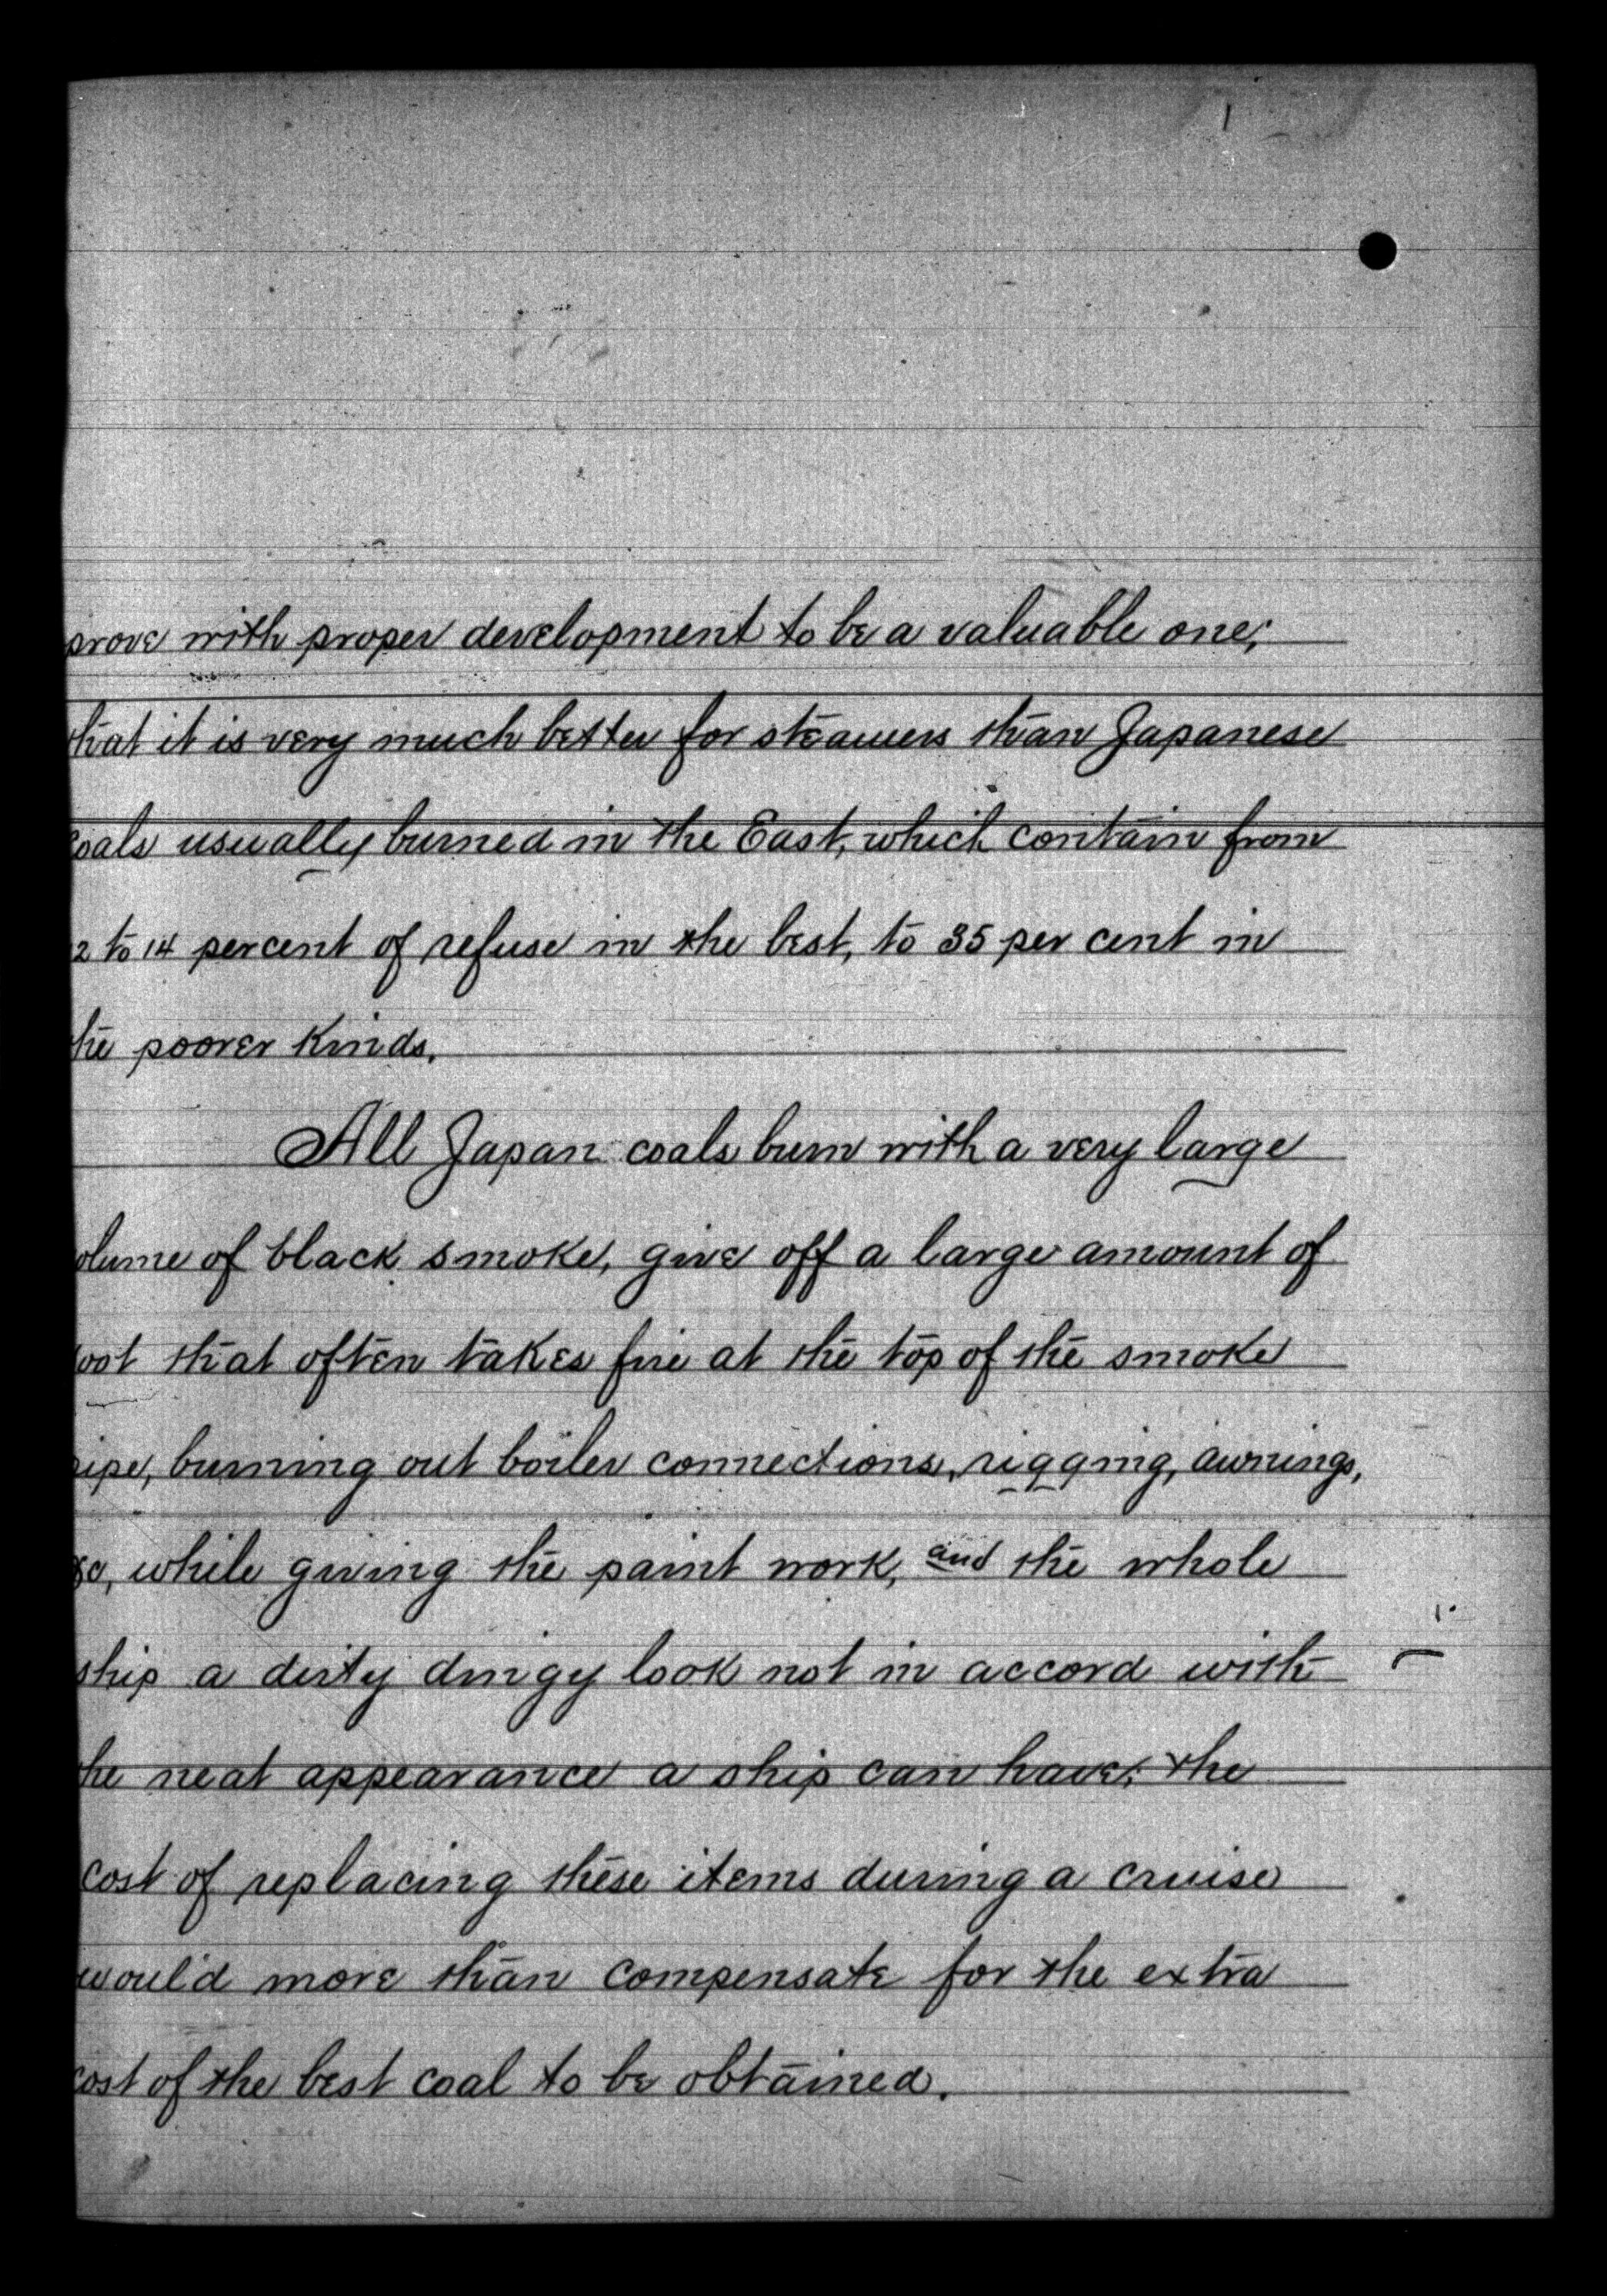 prove with proper development to be a valuable one;
that it is very much better for steamers than Japanese
coals usually burned in the East, which contain from
2 to 14 percent of refuse in the best, to 35 per cent in
the poorer kinds.
All Japan coals burn with a very large
olume of black smoke, give off a large amount of
oot that often takes fire at the top of the smoke
pipe, burning out boiler connections, rigging, awnings,
&c, while giving the paint work, and the whole
ship a dirty dingy look not in accord with
the neat appearance a ship can have; the
cost of replacing these items during a cruise
would more than compensate for the extra
cost of the best coal to be obtained.